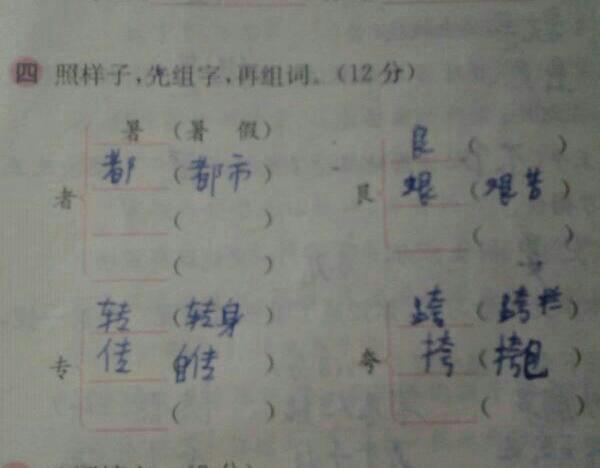 四 照样子,先组字,再组词。(12分)
者
暑 (暑 假)
都 (都市)
( )
( )
艮
良 ( )
艰 (艰苦)
( )
专
转 (转身)
传 (自传)
( )
夸
跨 (跨栏)
挎 (挎包)
( )